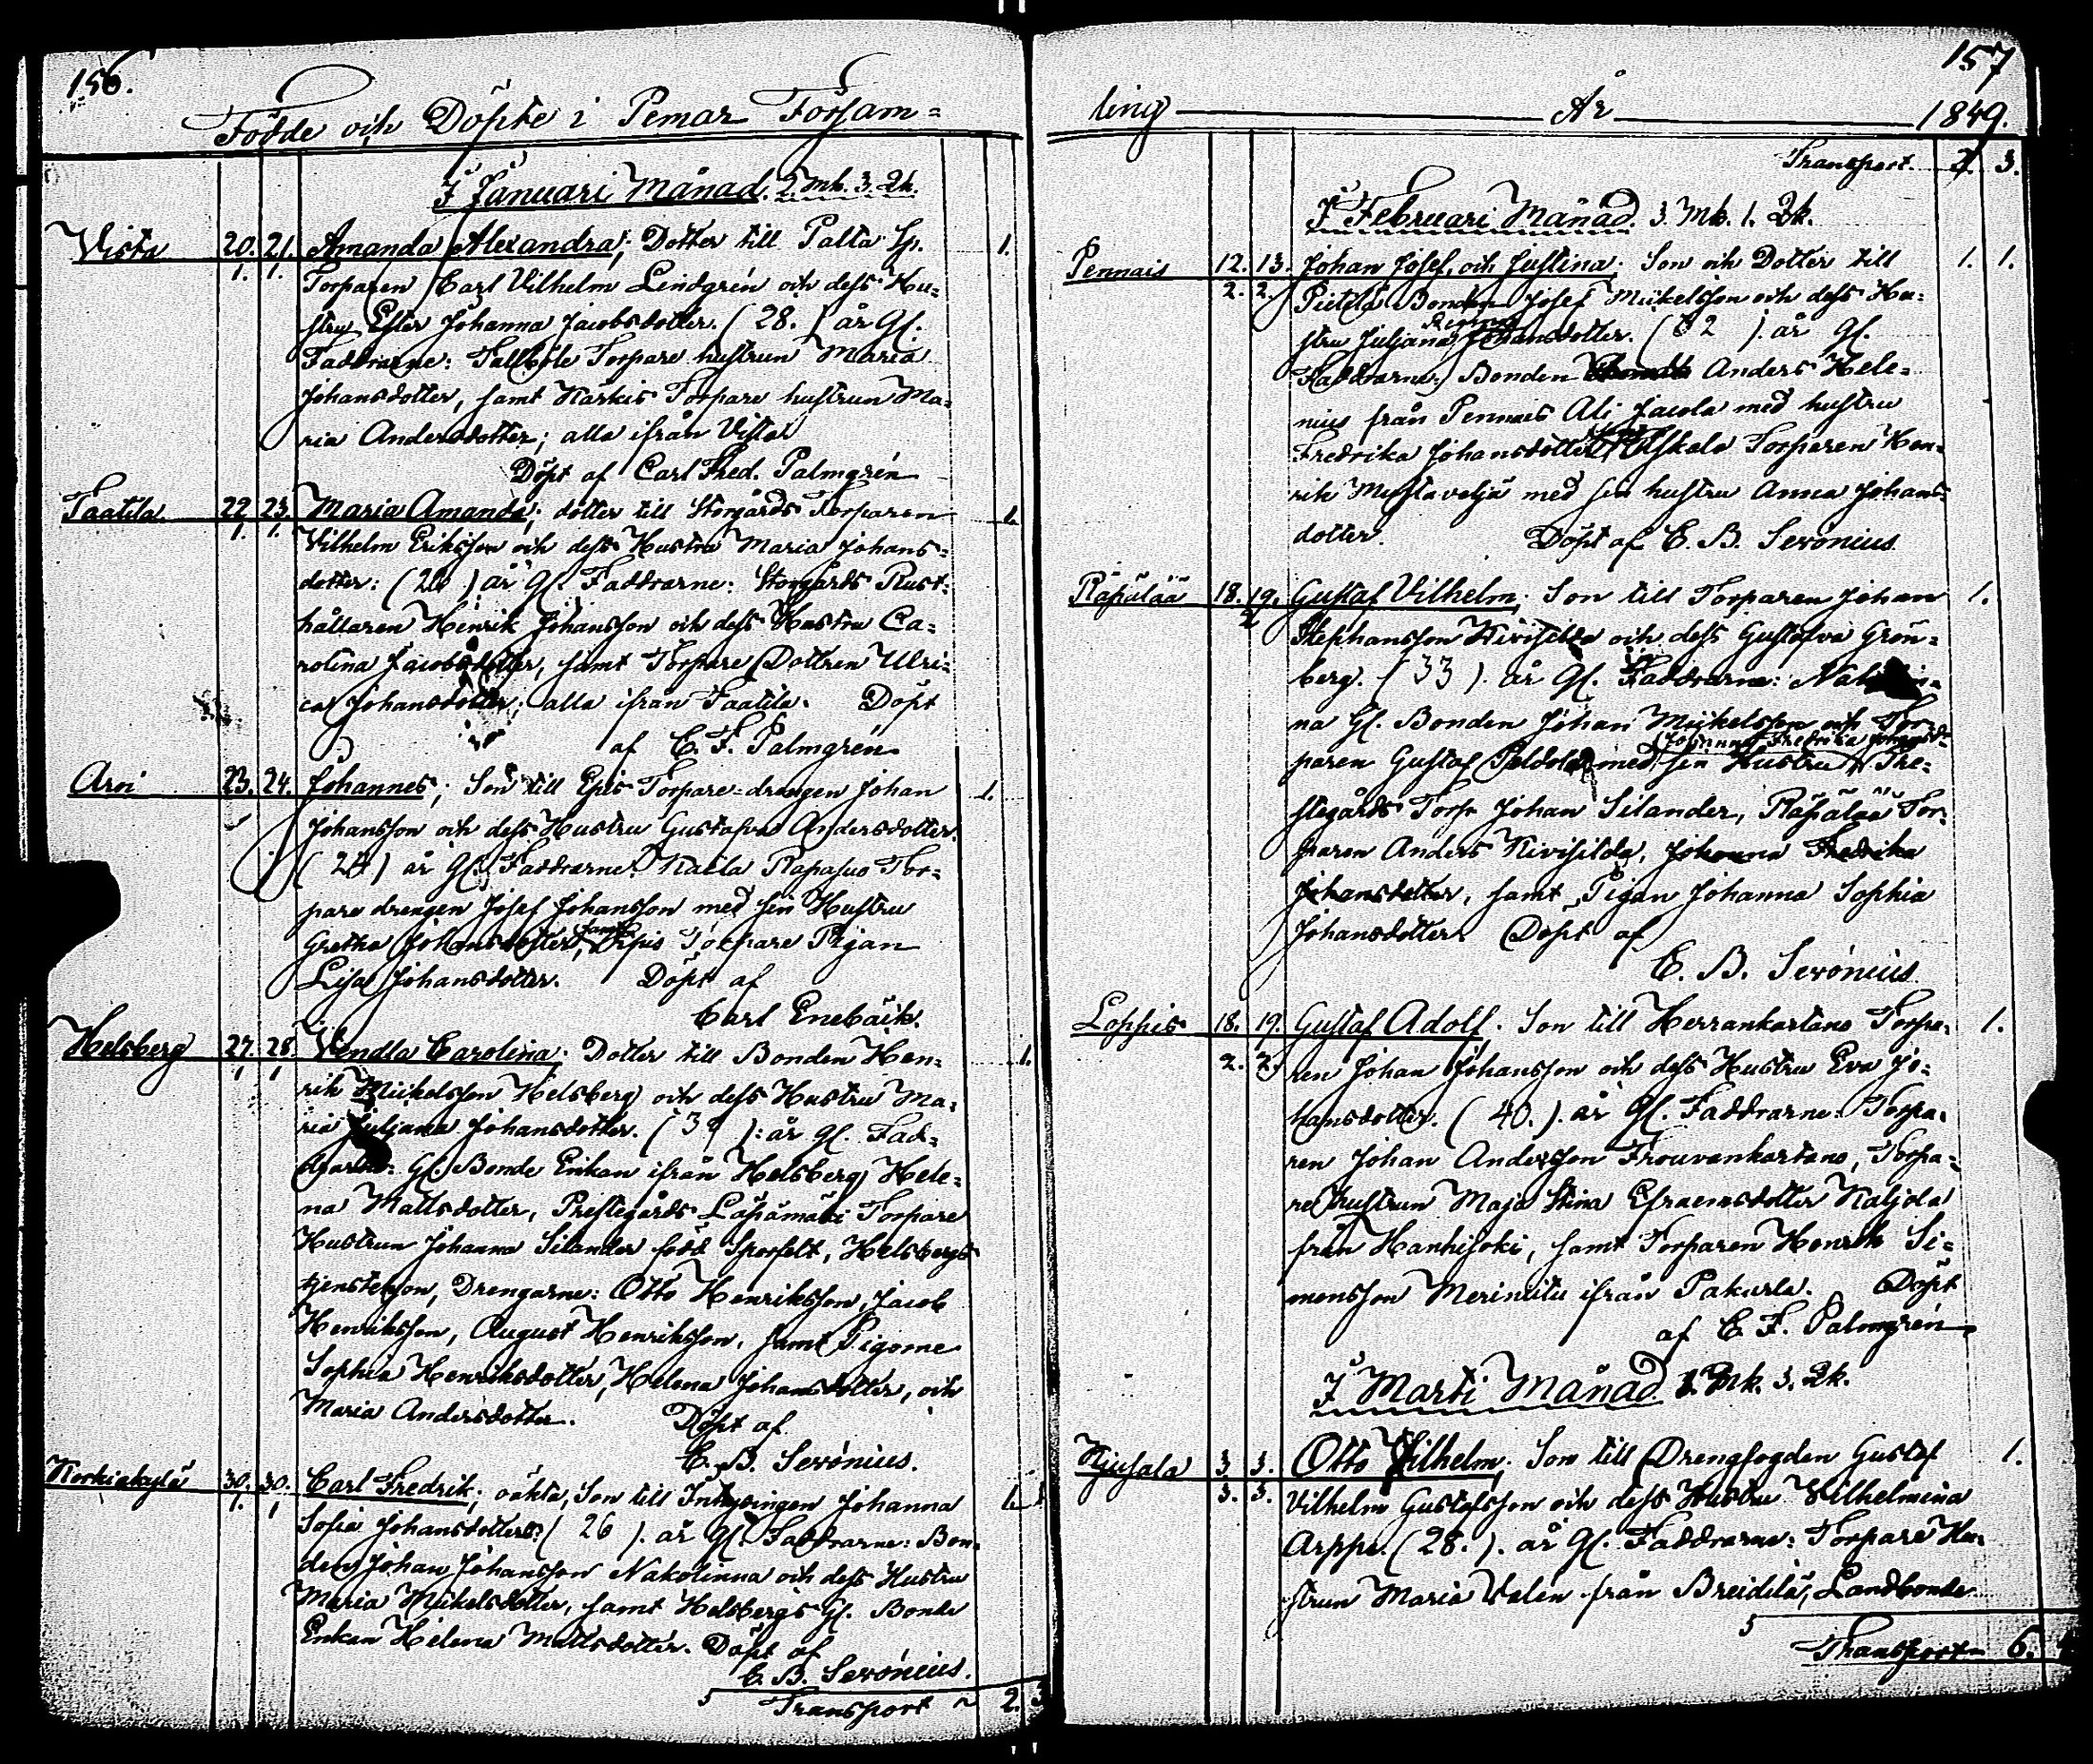 156.
Födde och Döpte i Pemar Församˍ
I Januari Månad. 2. Mk. 3. Qk.
Vista 20. 21. Amanda Alexandra; Dotter till Palta Sp. 1.
1. 1. Torparen Carl Vilhelm Lindgrén och dess Hu=
stru Ester Johanna Jacobsdotter. (28.) år Gl.
Faddrarne: Torpare hustrun Maria
Johansdotter, samt Karkis Torpare hustrun Ma=
ria Andersdotter; alla ifrån Vista
Döpt af Carl Fred. Palmgrén
Taatila 22. 23. Maria Amanda; dotter till Storgårds Torparen 1.
1. 1. Vilhelm Eriksson och dess Hustru Maria Johans=
dotter: (26) år Gl. Faddrarne: Storgårds Rust=
hållaren Henrik Johansson och dess Hustru Ca=
rolina Jacobsdotter, samt Torpare Dottren Ulri=
ca Johansdotter; alla ifrån Taatila. Döpt
af C. F. Palmgrén
Arvi 23. 24. Johannes; Son till Epis Torpare=drengen Johan 1.
Johansson och dess Hustru Gustafva Andersdotter.
(24) år Gl. Faddrarne: Nalla Rapasuo Tor=
pare drengen Josef Johansson med sin Hustru
samt
Gretha Johansdotter, Epis Torpare Pigan
Lisa Johansdotter. Döpt af
Carl Enebäck.
Helsberg 27. 28. Vendla Carolina; Dotter till Bonden Hen= 1.
1. 1. rik Mickelsson Helsberg och dess Hustru Ma=
ria Juliana Johansdotter. (39): år gl. Fad=
drarne: Gl. Bonde Enkan ifrån Helsberg Hele=
na Mattsdotter, Prestegårds Läpämäki Torpare
Hustrun Johanna Silander född Sporfelt, Helsbergs
tjenstefson, Drengarne: Otto Henriksson, Jacob
Henriksson, August Henriksson, samt Pigorne
Sophia Henriksdotter, Helena Johansdotter, och
Maria Andersdotter. Döpt af
C. B. Serónius.
Korkiakylä 30. 30. Carl Fredrik; oäkta, Son till Inhysingen Johanna 1.
1. 1. Sofia Johansdotter: (26). år Gl. Faddrarne: Bon=
den Johan Johansson Nakolinna och dess Hustru
Maria Mickelsdotter, samt Helsbergs Gl. Bonde
Enkan Helena Mattsdotter. Döpt af
C. B. Serónius.
5 Transport 2. 3
157
ling År 1849.
Transport. 2. 3.
I Februari Månad. 3. Mk. 1. Qk.
Pennais 12. 13. Johan Josef, och Justina. Son och Dotter till 1. 1.
2. 2. Pietilä Bonden Josef Mickelsson och dess Hu=
stru Juljana Johansdotter. ( 2 ). år Gl.
Faddrarne: Bonden Anders Hele=
nius från Pennais Ali Jacola med hustru
Fredrika Johansdotter, Uskala Torparen Hen=
rik Mustaveljä med sin hustru Anna Johans=
dotter. Döpt af C. B. Serónius
Räpälää 18. 19. Gustaf Vilhelm; Son till Torparen Johan 1.
2 Stephansson Kivisilda och dess Gustafva Grön=
berg. (33). år Gl. Faddrarne:
na Gl. Bonden Johan Mickelsson och Tor=
Johanna Fredrika Johansdt
paren Gustaf Peldola med sin Hustru Pre=
stegårds Torp. Johan Silander, Räpälää Tor=
paren Anders Kivisilda, Johanna Fredrika
Johansdotter, samt Pigan Johanna Sophia
Johansdotter. Döpt af
C. B. Serónius
Loppis 18. 19. Gustaf Adolf. Son till Herrankartano Torpa= 1.
2. 2. ren Johan Johansson och dess Hustru Eva Jo=
hansdotter. (40.). år Gl. Faddrarne: Torpa=
ren Johan Andersson Frouvankartano, Torpa=
re hustrun Maja Stina Efraemsdotter Kaljola
från Hanhijoki, samt Torparen Henrik Si=
monsson Meriniitu ifrån Pakurla. Döpt
af C. F. Palmgrén
I Marti Månad. 1. Mk. 3. Qk.
Njusala 3. 3. Otto Vilhelm; Son till Drengfogden Gustaf 1.
3. 3. Vilhelm Gustafsson och dess Hustru Vilhelmina
Arppe. (28.). år Gl. Faddrarne: Torpare Hu=
strun Maria Valén från Breidilä, Landbonde
5
Transport 6.